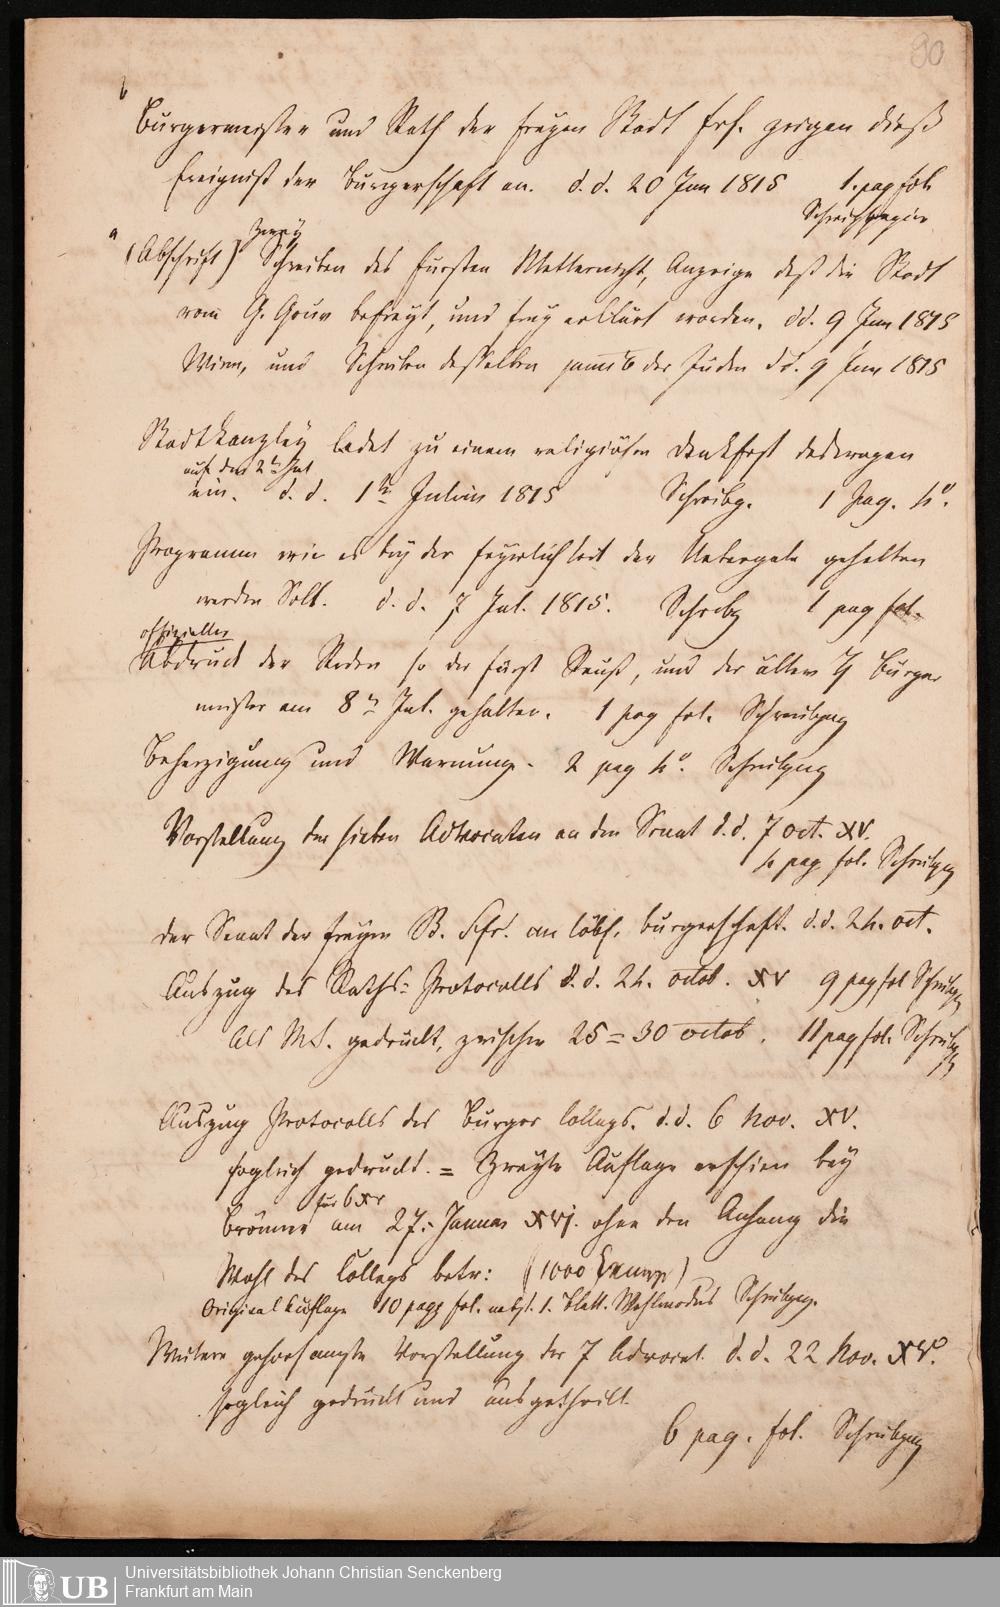 90
b
Burgermeister und Rath der freyen Stadt frf. zeigen dieß
Ereigniß der Burgerschaft an. d. d. 20 Jun 1815 1. pag fol.
Schreibpapier
a
Zwey
(Abschrift) Schreiben des Fursten Metternich, Anzeige daß die Stadt
vom G. Gouv befreyt, und frey erklärt worden. dd. 9 Jun 1815
Wien, und Schreiben desselben der Juden dd. 9 Jun 1815
Stadtkanzley ladet zu einem religiösen Dankfest deswegen
auf den 2n Jul
ein. d. d. 1n Julius 1815 Schreibp. 1 Pag. 4o.
Programm wie es bey der feyerlichkeit der Uebergabe gehalten
werden Soll. d. d. 7 Jul. 1815. Schreibp 1 pag fol.
offizieller
Abdruck der Reden so der Fürst Reuß, und der ältere H Burger
meister am 8n Jul. gehalten. 1 pag fol. Schreibpap
Beherzigung und Warnung. 2 pag 4o. Schreibpap
Vorstellung der sieben Advocaten an den Senat d. d. 7 oct. XV.
4 pag fol. Schreibpap
der Senat der freyen St. Ffr. an löbl. burgerschaft. d. d. 24. oct.
Auszug des Raths-Protocolls d. d. 24. octob. XV 9 pag fol Schreibpap
Als MS. gedruckt, zwischen 25 = 30 octob. 11 pag fol. Schreibpap
Auszug Protocolls des Burger Collegs. d. d. 6 Nov. XV.
sogleich gedruckt. = Zweyte Auflage erschien bey
für 6 xr
Brönner am 27. Januar XVI. ohne den Anhang die
Wahl des Collegs betr: (1000 Exempp)
Original Auflage 10 pagg fol. nebst 1. Blatt. Wahlmodus Schreibpap.
Weitere gehorsamste Vorstellung der 7 Advocat. d. d. 22 Nov. XVo.
sogleich gedruckt und ausgetheilt.
6 pag. fol. Schreibpap
UB
Universitätsbibliothek Johann Christian Senckenberg
Frankfurt am Main